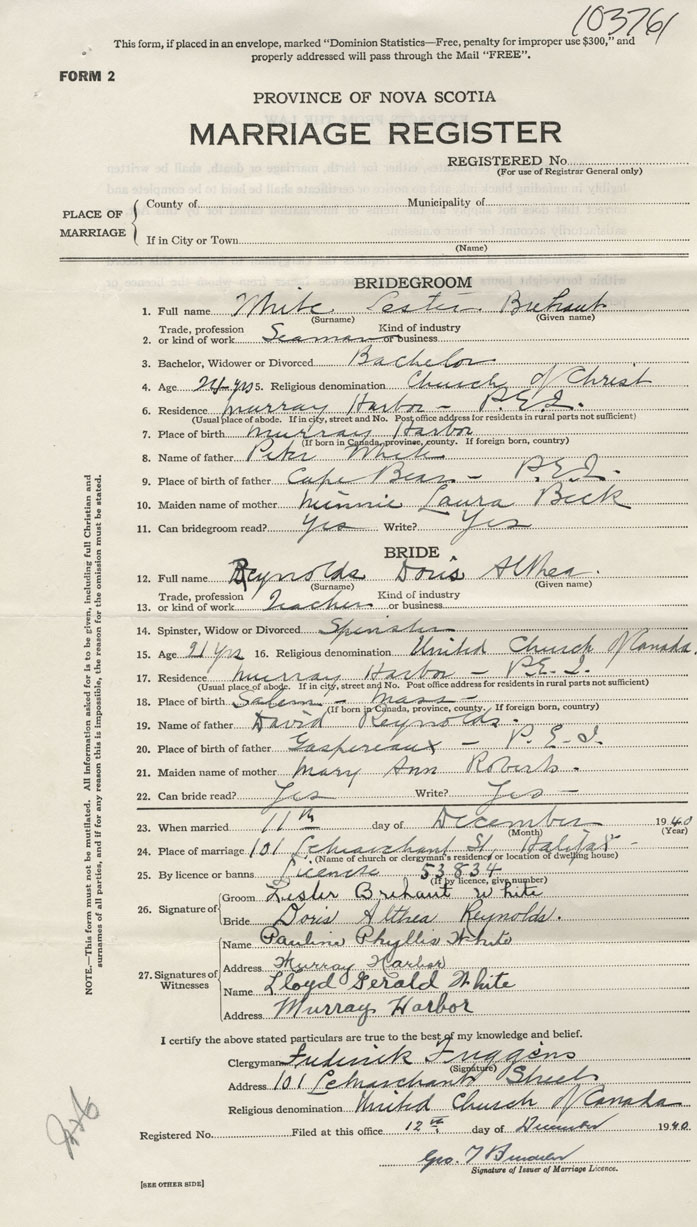 103761
This form, if placed in an envelope, marked “Dominion Statistics—Free, penalty for improper use $300,” and
properly addressed will pass through the Mail “FREE”.
FORM 2
PROVINCE OF NOVA SCOTIA
MARRIAGE REGISTER
REGISTERED No.
(For use of Registrar General only)
PLACE OF MARRIAGE
County of Municipality of
If in City or Town
(Name)
BRIDEGROOM
1. Full name White Lester Brehaut
(Surname) (Given name)
2. Trade, profession or kind of work Seaman Kind of industry or business
3. Bachelor, Widower or Divorced Bachelor
4. Age 24 yrs 5. Religious denomination Church of Christ
6. Residence Murray Harbor - P.E.I.
(Usual place of abode. If in city, street and No. Post office address for residents in rural parts not sufficient)
7. Place of birth Murray Harbor
(If born in Canada, province, county. If foreign born, country)
8. Name of father Peter White
9. Place of birth of father Cape Bear - P.E.I.
10. Maiden name of mother Minnie Laura Beck
11. Can bridegroom read? Yes Write? Yes
BRIDE
12. Full name Reynolds Doris Althea.
(Surname) (Given name)
13. Trade, profession or kind of work Teacher Kind of industry or business
14. Spinster, Widow or Divorced Spinster
15. Age 21 Yrs 16. Religious denomination United Church of Canada.
17. Residence Murray Harbor - P.E.I.
(Usual place of abode. If in city, street and No. Post office address for residents in rural parts not sufficient)
18. Place of birth Salem - Mass -
(If born in Canada, province, county. If foreign born, country)
19. Name of father David Reynolds.
20. Place of birth of father Gaspereaux - P.E.I.
21. Maiden name of mother Mary Ann Roberts.
22. Can bride read? Yes Write? Yes -
23. When married 11th day of December 1940
(Month) (Year)
24. Place of marriage 101 Lemarchant St, Halifax -
(Name of church or clergyman's residence or location of dwelling house)
25. By licence or banns Licence 53834
(If by licence, give number)
26. Signature of
Groom Lester Brehaut White
Bride Doris Althea Reynolds.
27. Signatures of Witnesses
Name Pauline Phyllis White
Address Murray Harbor
Name Lloyd Gerald White
Address Murray Harbor
I certify the above stated particulars are true to the best of my knowledge and belief.
Clergyman Frederick Friggens
(Signature)
Address 101 Lemarchant Street
Religious denomination United Church of Canada
Registered No. Filed at this office 12th day of December 1940.
Geo. T
Signature of Issuer of Marriage Licence.
[SEE OTHER SIDE]
NOTE.—This form must not be mutilated. All information asked for is to be given, including full Christian and
surnames of all parties, and if for any reason this is impossible, the reason for the omission must be stated.